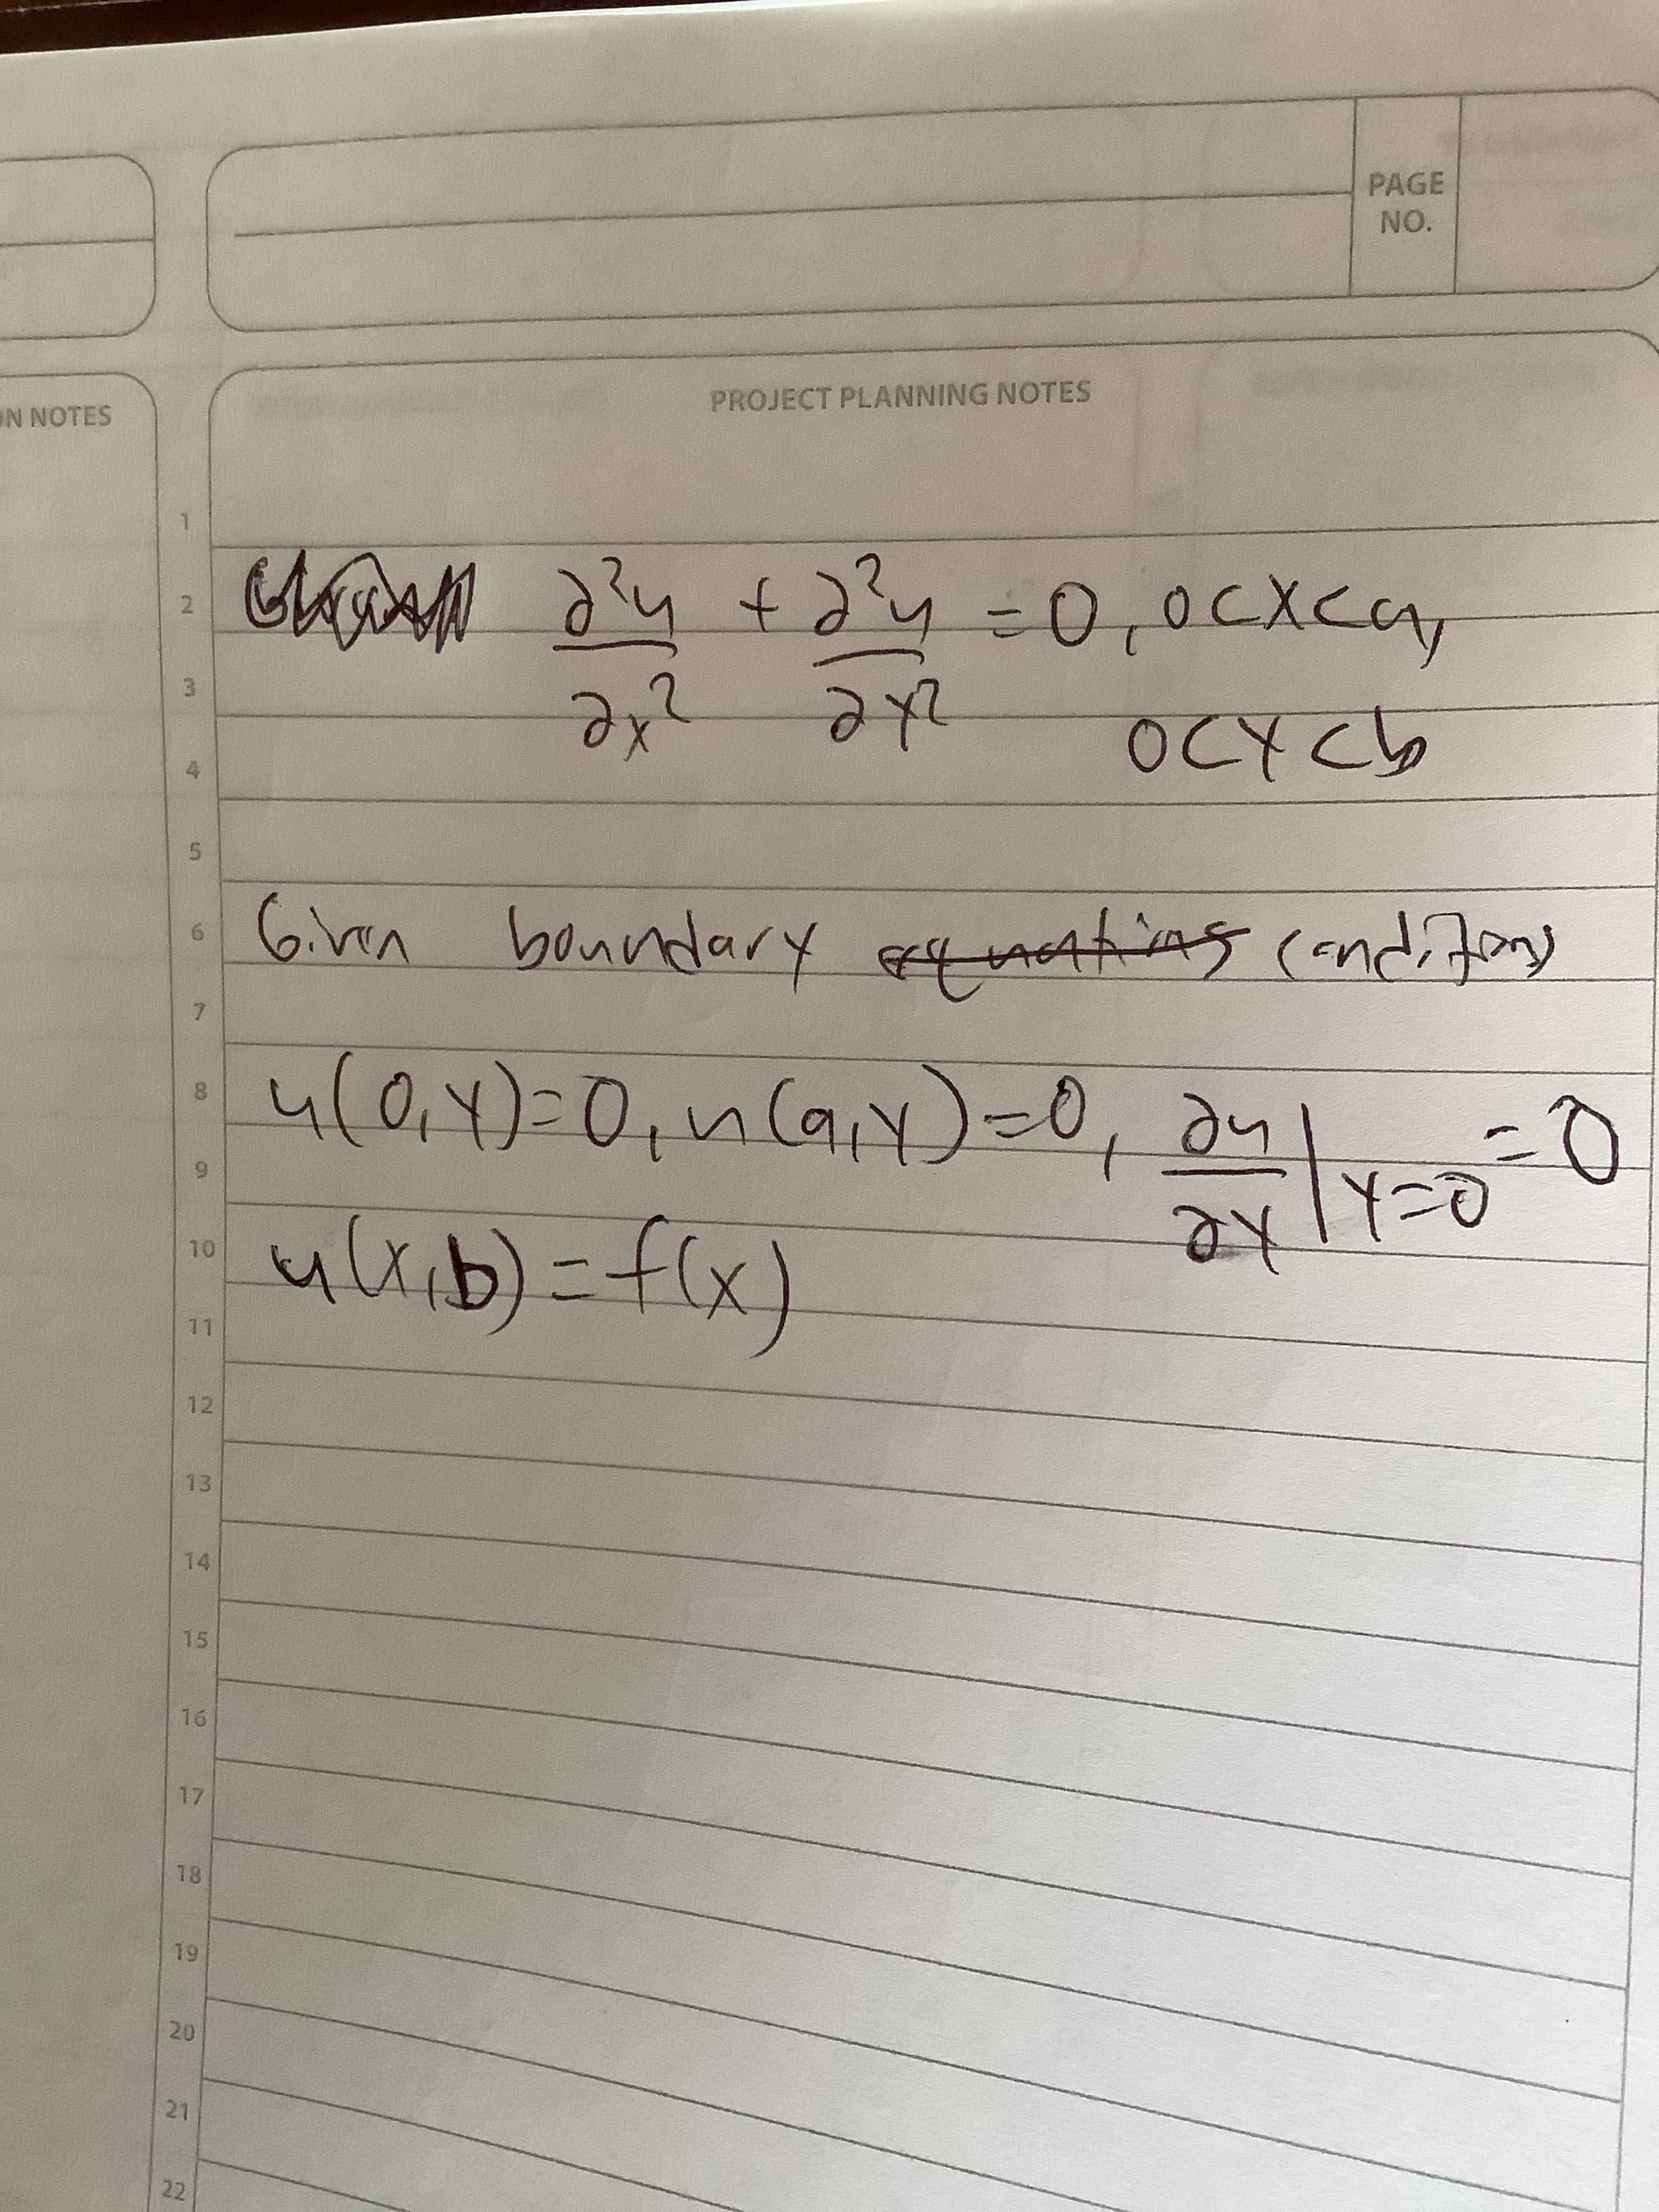 PAGE NO.
ON NOTES
PROJECT PLANNING NOTES
1
2 ∂²u/∂x² + ∂²u/∂y² = 0, 0<x<a,
3
0<y<b
4
5
6 Given boundary equations conditions
7
8 u(0,y)=0, u(a,y)=0, ∂u/∂y|y=0 = 0
9
10 u(x,b)=f(x)
11
12
13
14
15
16
17
18
19
20
21
22